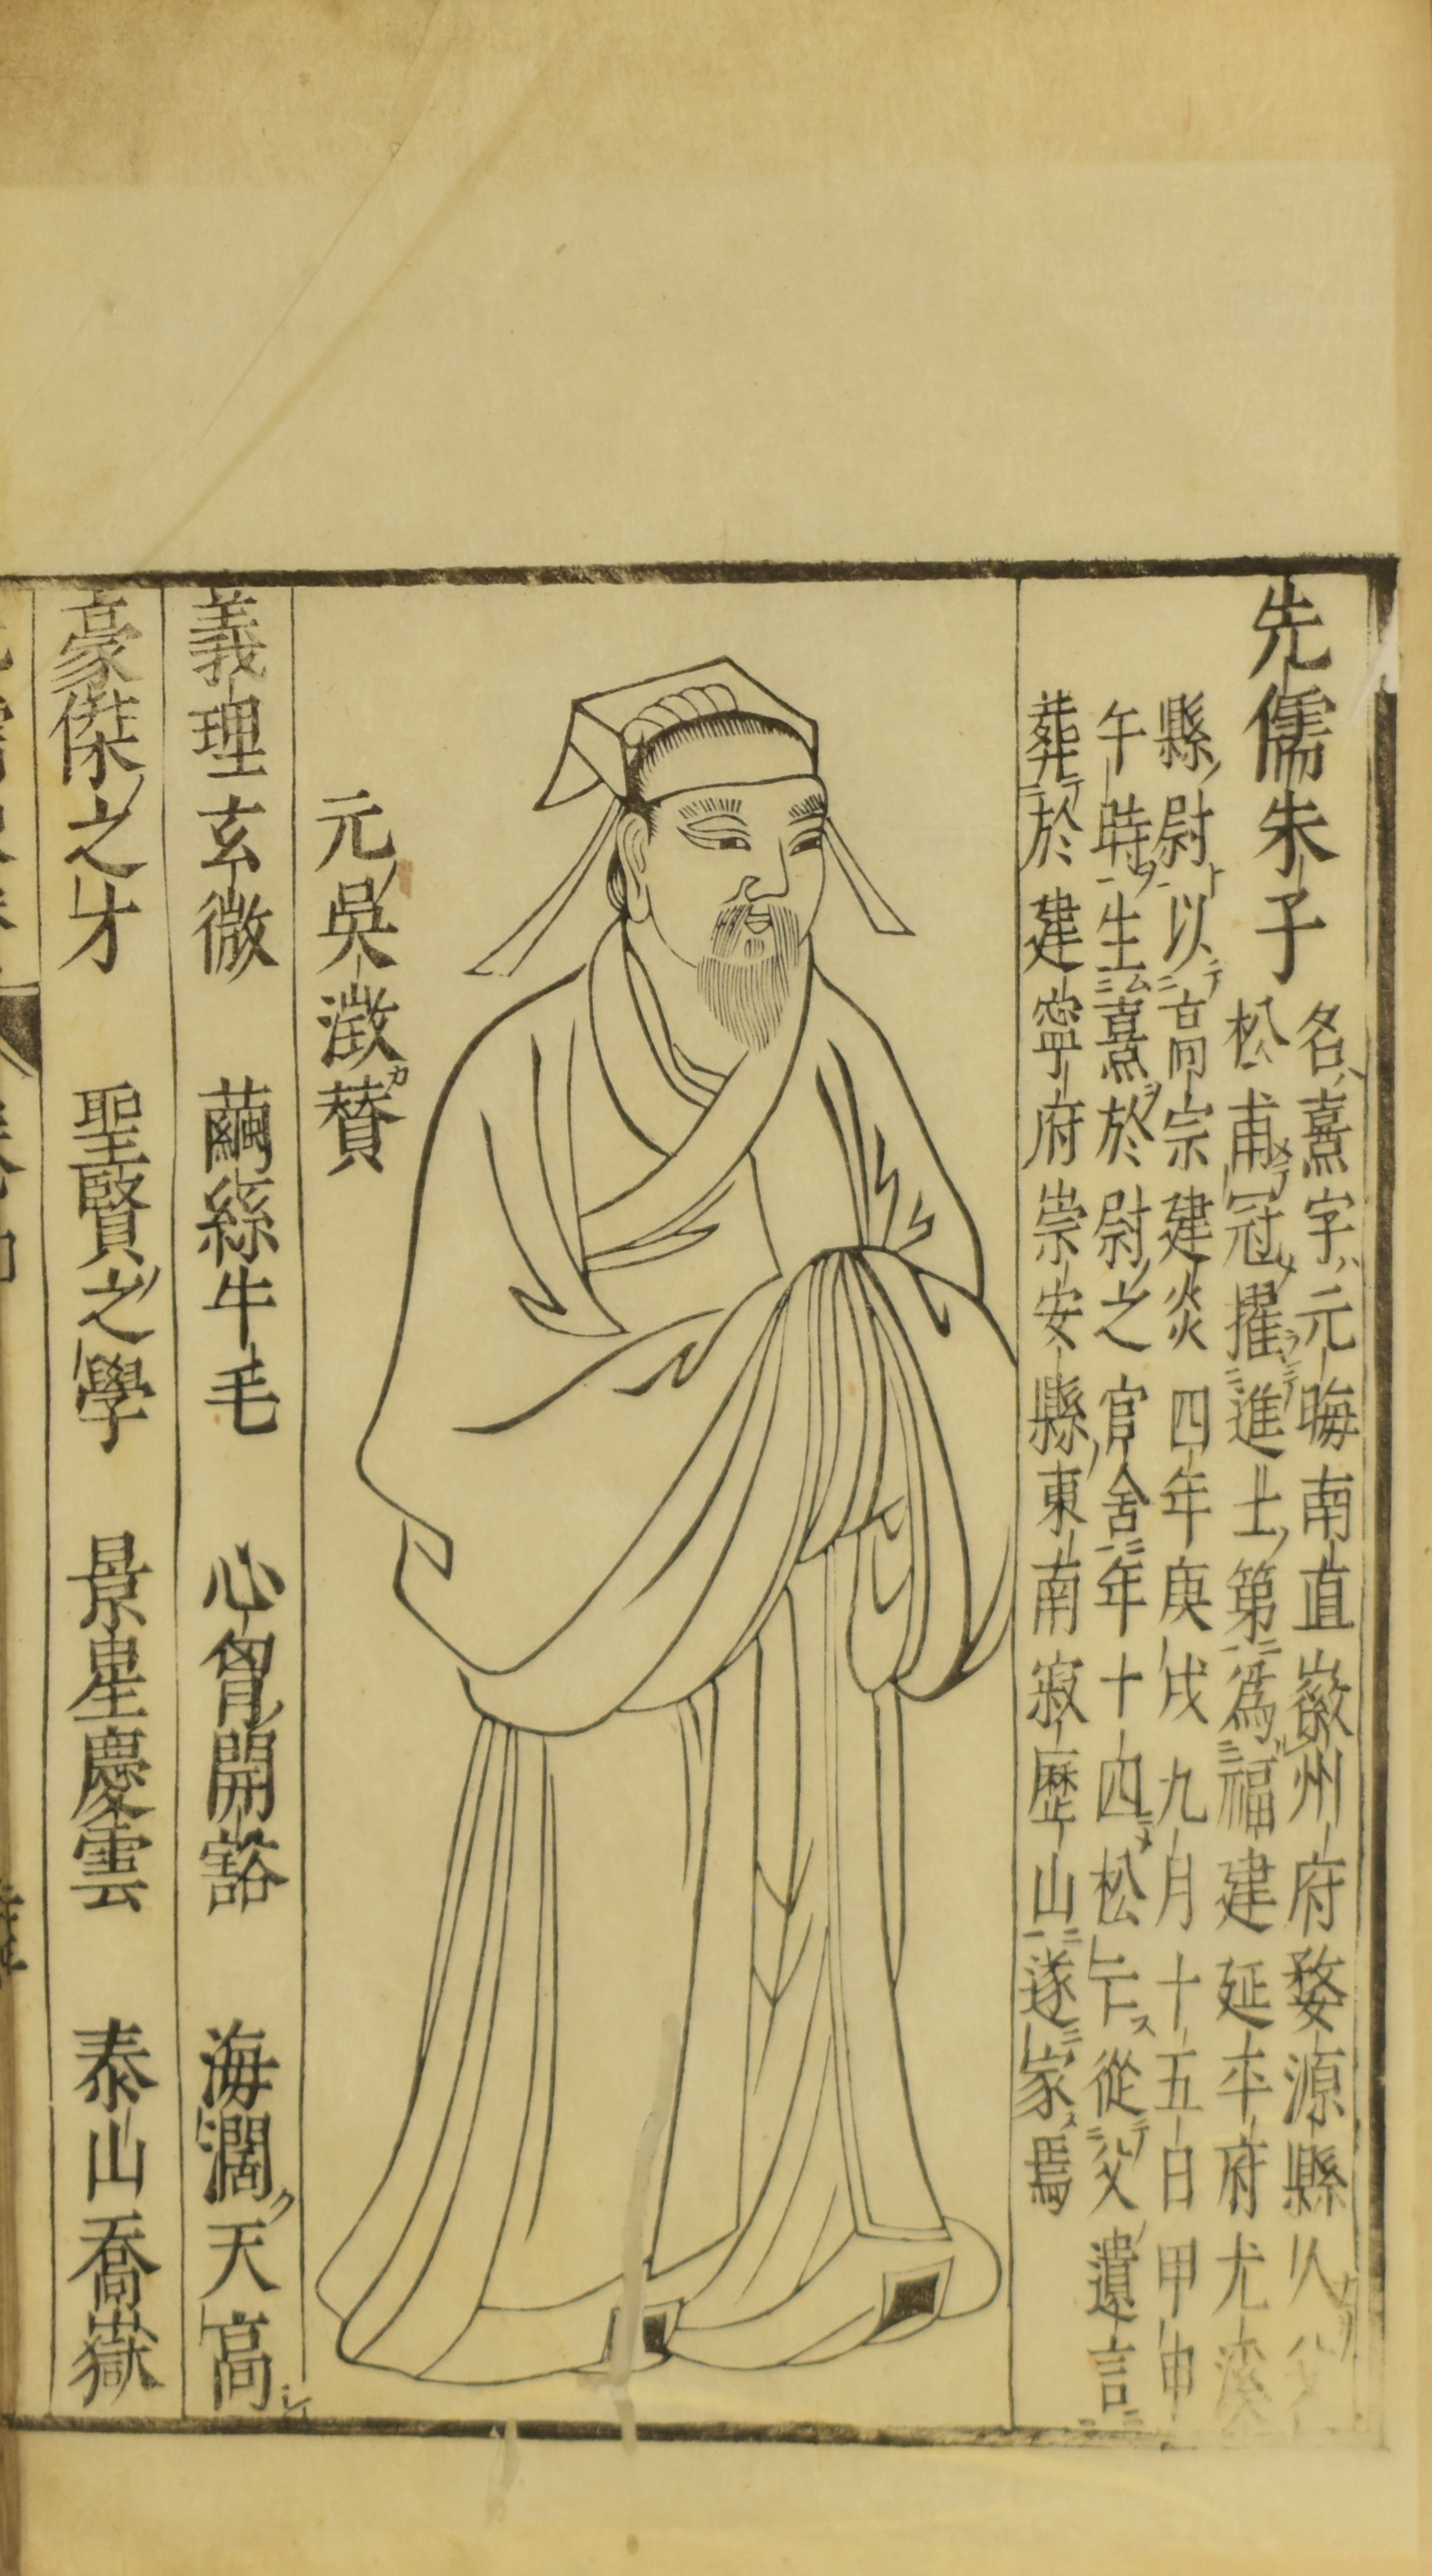 先儒朱子
名熹字元晦南直徽州府婺源縣人父
松甫冠擢進士第為福建延平府尤溪
縣尉以高宗建炎四年庚戌九月十五日甲申
午時生熹於尉之官舍年十四松亡從父遺言
葬於建寧府崇安縣東南寂歷山遂家焉
元吳澂賛
義理玄微 繭絲牛毛 心胷開豁 海濶天高
豪傑之才 聖賢之學 景星慶雲 泰山喬嶽